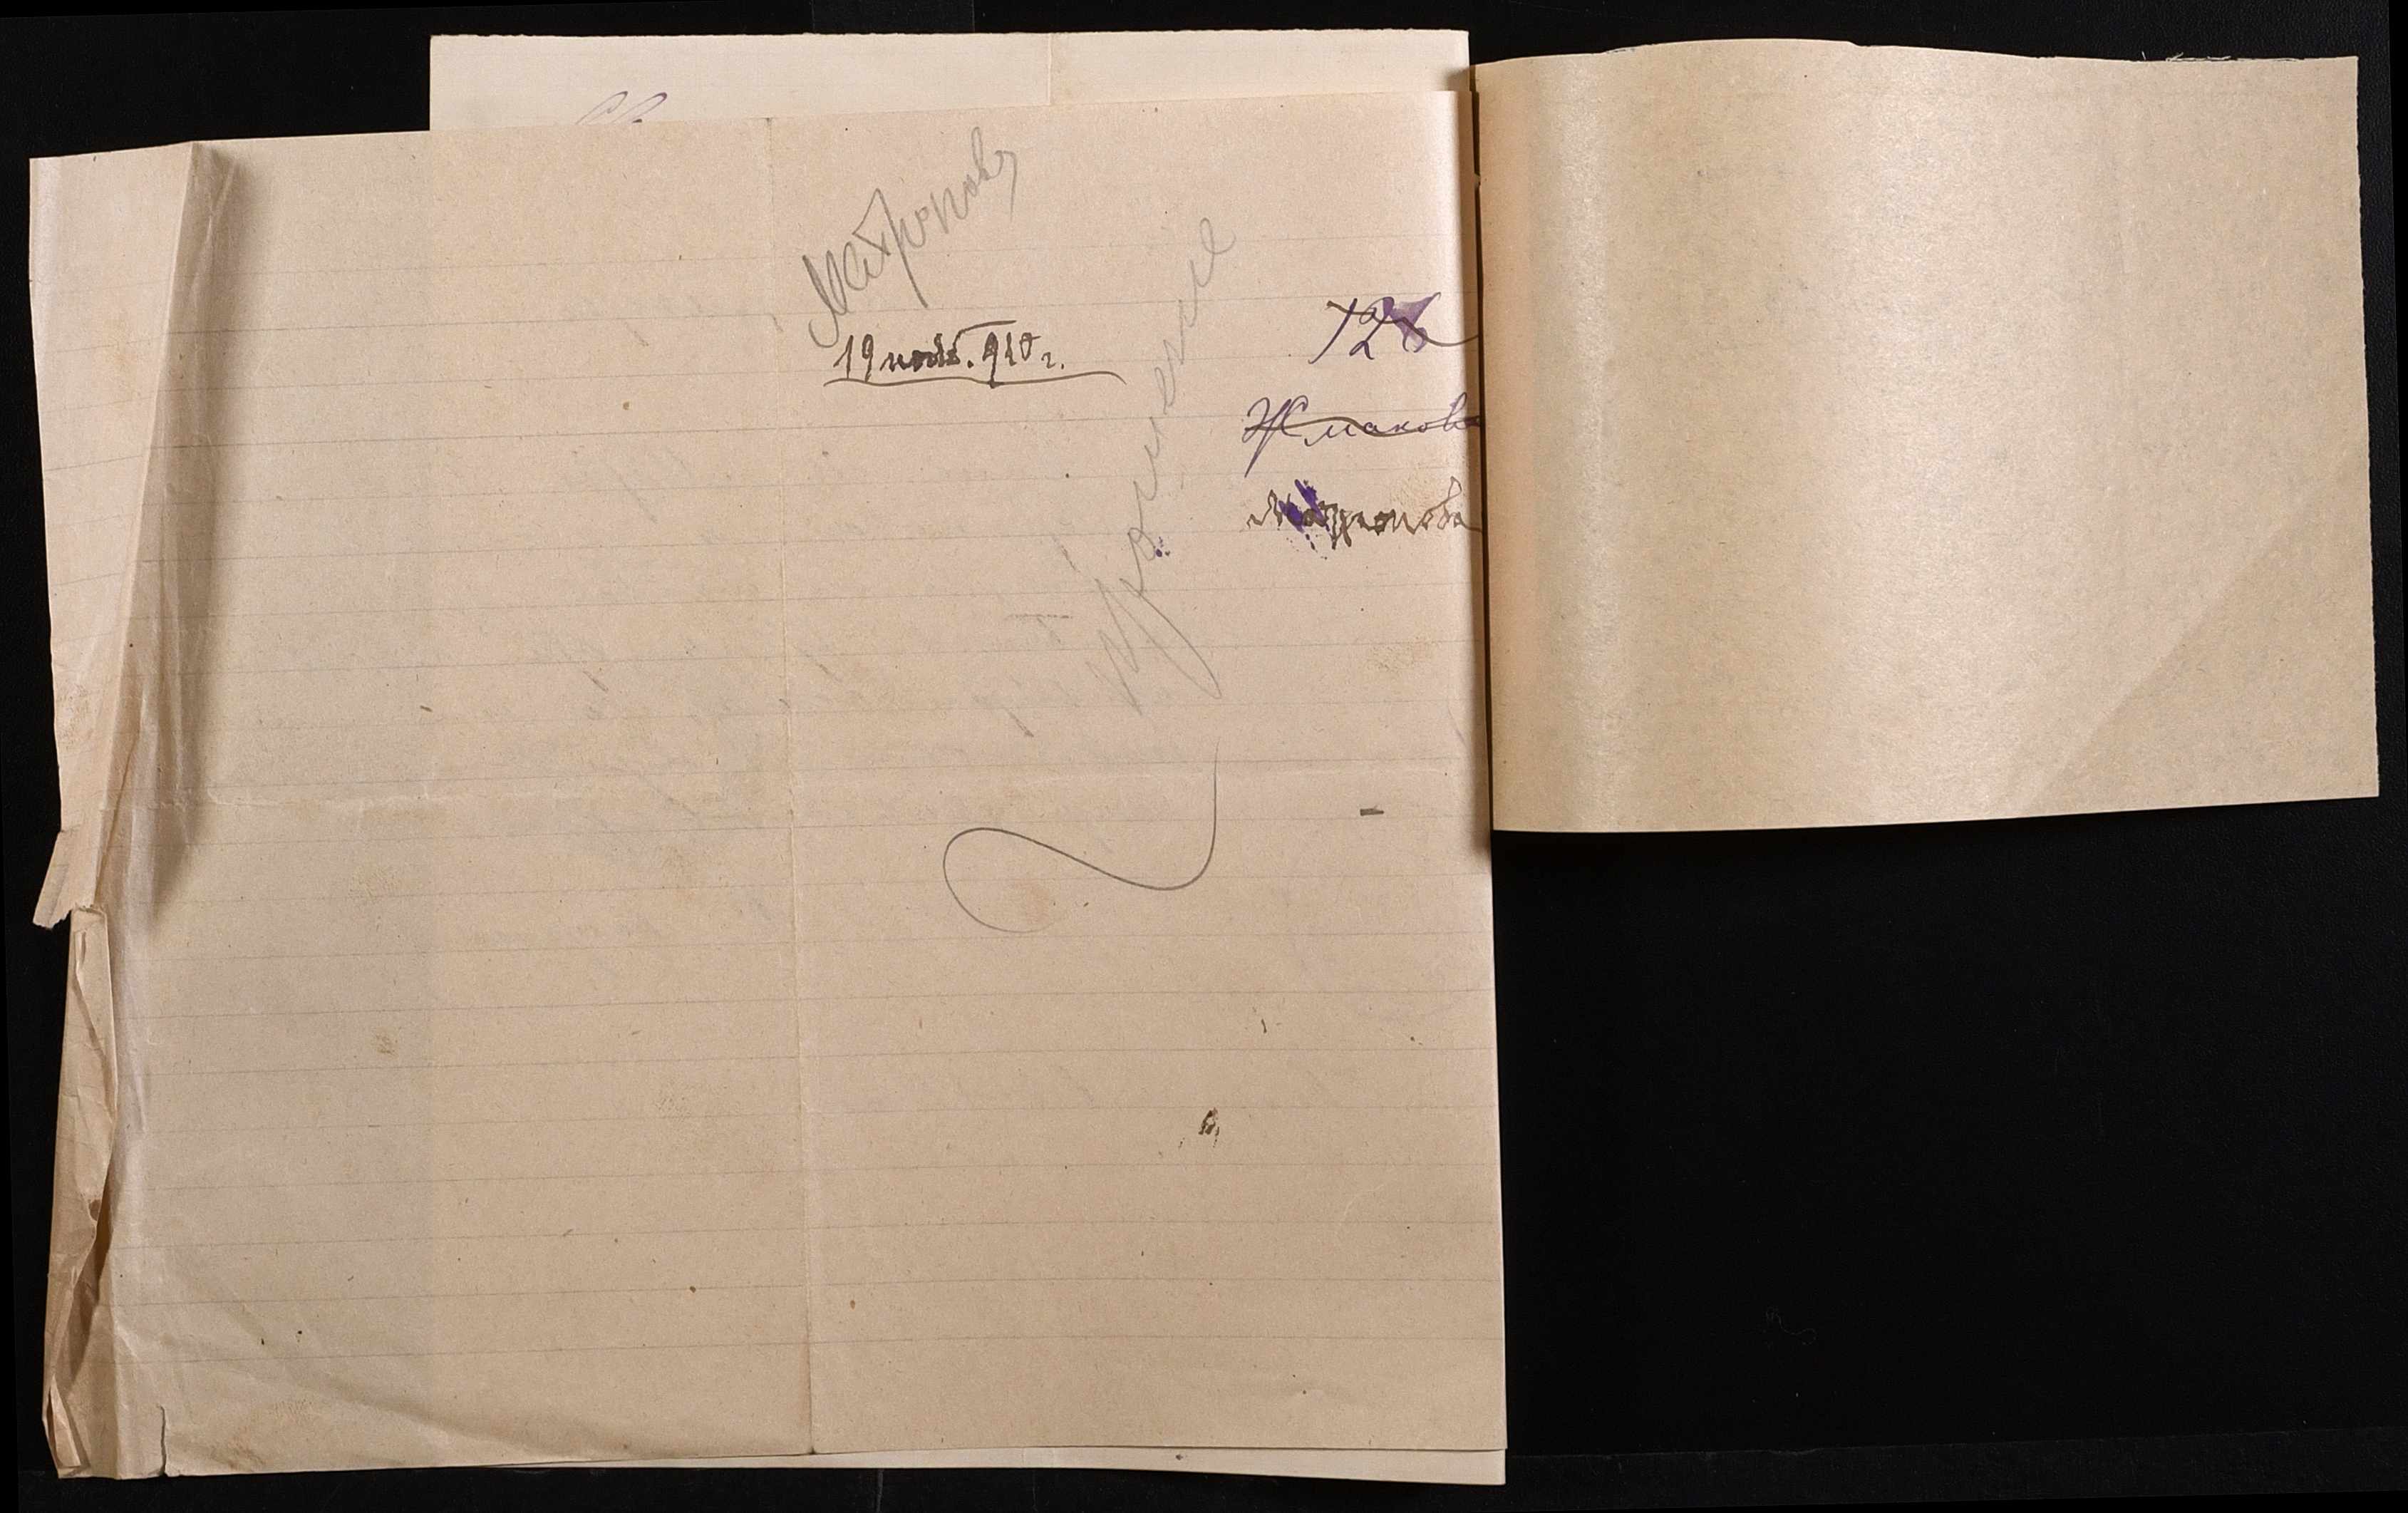 Матронов
19 нояб. 910 г.
прошение
128
Жмакова
Матронова